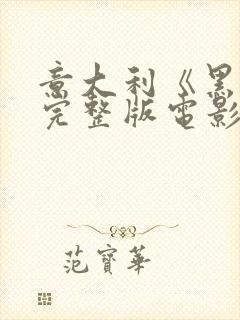 意大利《黑
完整版電影
范寶華